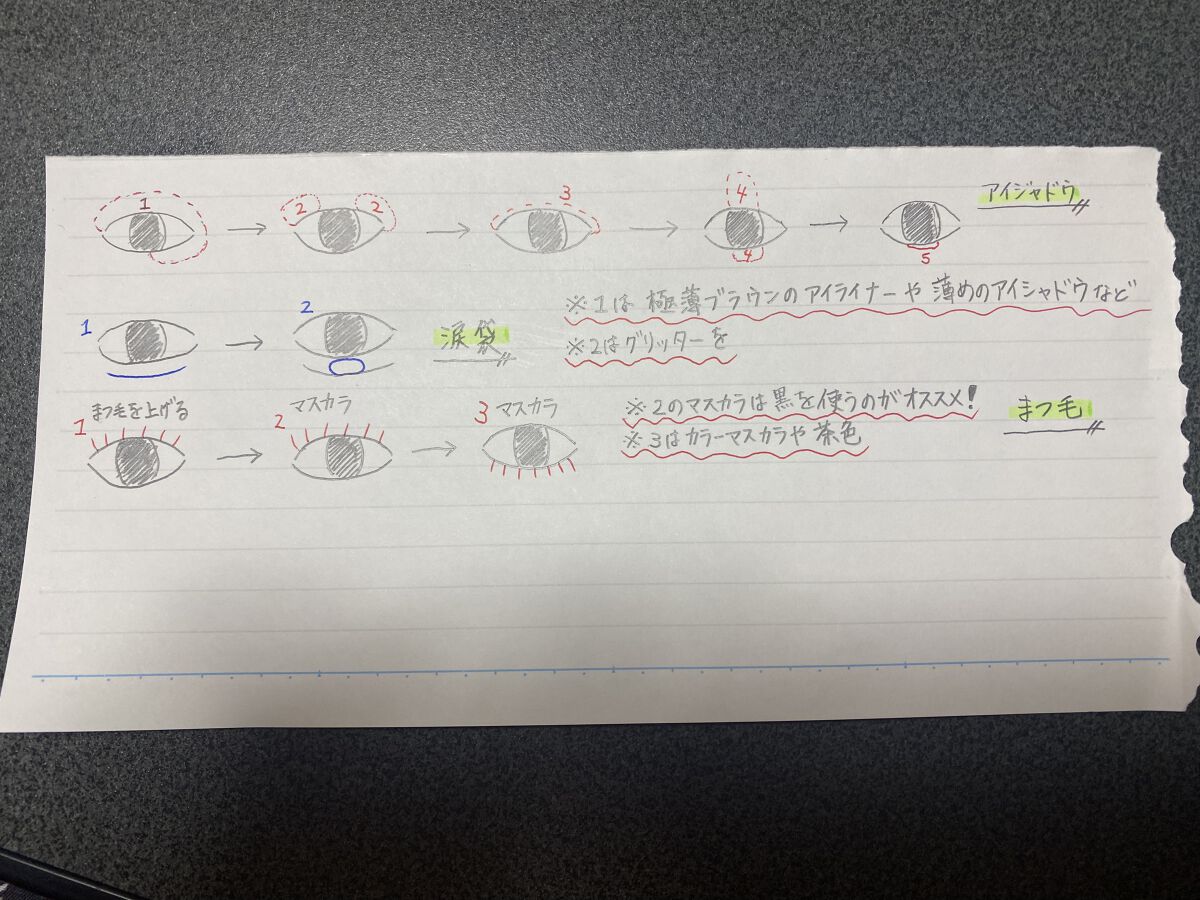 1 2 2 3 4 4 5 アイシャドウ
※1は 極薄ブラウンのアイライナーや 薄めのアイシャドウなど
1 2 涙袋 ※2はグリッターを
まつ毛を上げる マスカラ マスカラ ※2のマスカラは黒を使うのがオススメ! まつ毛
1 2 3 ※3はカラーマスカラや茶色